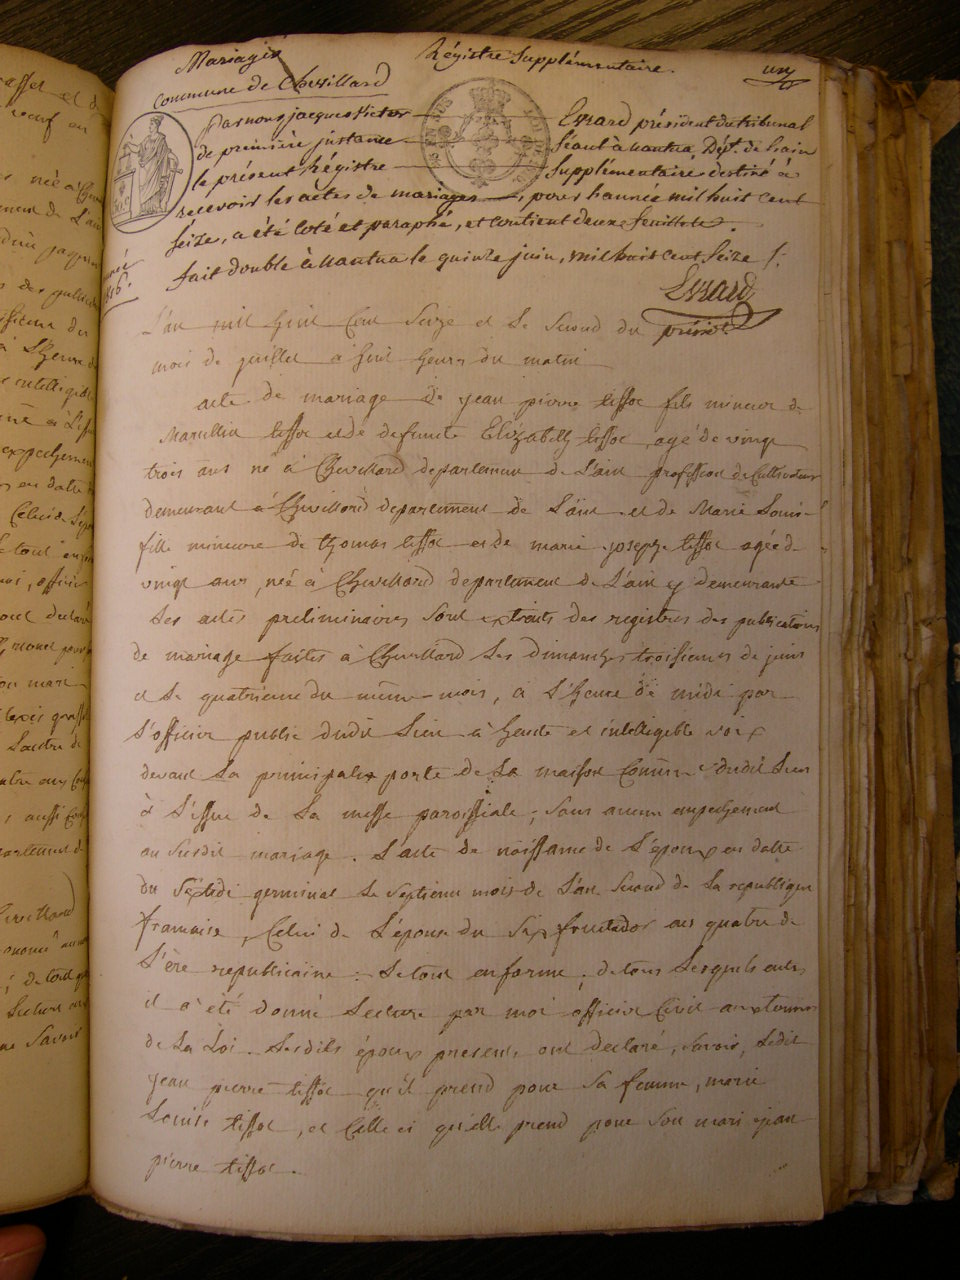 Mariages Régistre Supplémentaire. un
Commune de Chevillard
Par nous jacques Victor Evrard président du tribunal
de première instance Séant à Nantua, Dépt. de L'ain
le présent Régistre Supplémentaire destiné à
recevoir les actes de mariages, pour L'année mil huit cent
seize, a été coté et paraphé, et contient deux feuillets.
fait double à Nantua le quinze juin, mil huit cent seize
Evrard
L'an mil huit Cent Seize et Le Second du présid
mois de juillet à huit heures du matin
acte de mariage de jean pierre tissot fils mineur de
Marcellin tissot et de defunte Elizabeth tissot, agé de vingt
trois ans né à Chevillard departement de L'ain profession de Cultivateur
demeurant à Chevillard departement de L'ain et de Marie Louise
fille mineure de thomas tissot et de marie josephe tissot agée de
vingt ans, née à Chevillard departement de L'ain y demeurante
Les actes preliminaires Sont extraits des registres des publications
de mariage faites à Chevillard Les dimanches troisiemes de juin
et Le quatrieme du même mois, à L'heure de midi par
L'officier public dudit Lieu à haute et intelligible voix
devant La principale porte de La maison Comune dudit Lieu
à L'issue de La messe paroissiale; Sans aucun empechement
au Susdit mariage. L'acte de naissance de L'époux en datte
du Sextidi germinal Le Septieme mois de L'an Second de La republique
francaise, Celui de L'épouse du Six fructidor an quatre de
L'ère republicaine: Le tout en forme; de tous Lesquels actes
il a été donné Lecture par moi officier Civil aux termes
de La Loi. Lesdits époux presents ont declaré, Savoir, Ledit
jean pierre tissot qu'il prend pour Sa femme, marie
Louise tissot, et Celle ci qu'elle prend pour Son mari jean
pierre tissot.